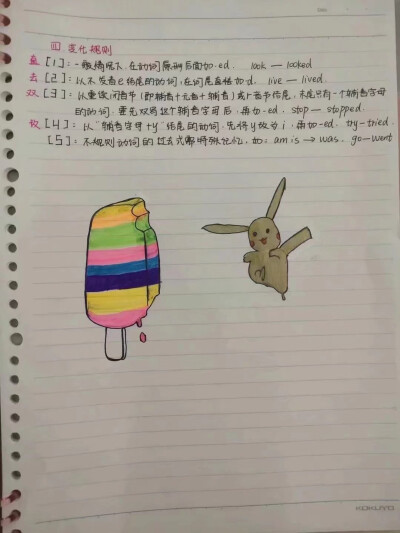 四. 变化规则
直 [1]: 一般情况下, 在动词原形后面加-ed. look — looked
去 [2]: 以不发音e结尾的动词, 在词尾直接加-d. live — lived.
双 [3]: 以重读闭音节 (即辅音+元音+辅音) 或r音节结尾, 末尾只有一个辅音字母
的动词, 要先双写这个辅音字母后, 再加-ed. stop — stopped.
改 [4]: 以"辅音字母+y"结尾的动词, 先将y改为i, 再加-ed. try-tried.
[5]: 不规则动词的过去式需特殊记忆, 如: am is → was. go-went
KOKUYO